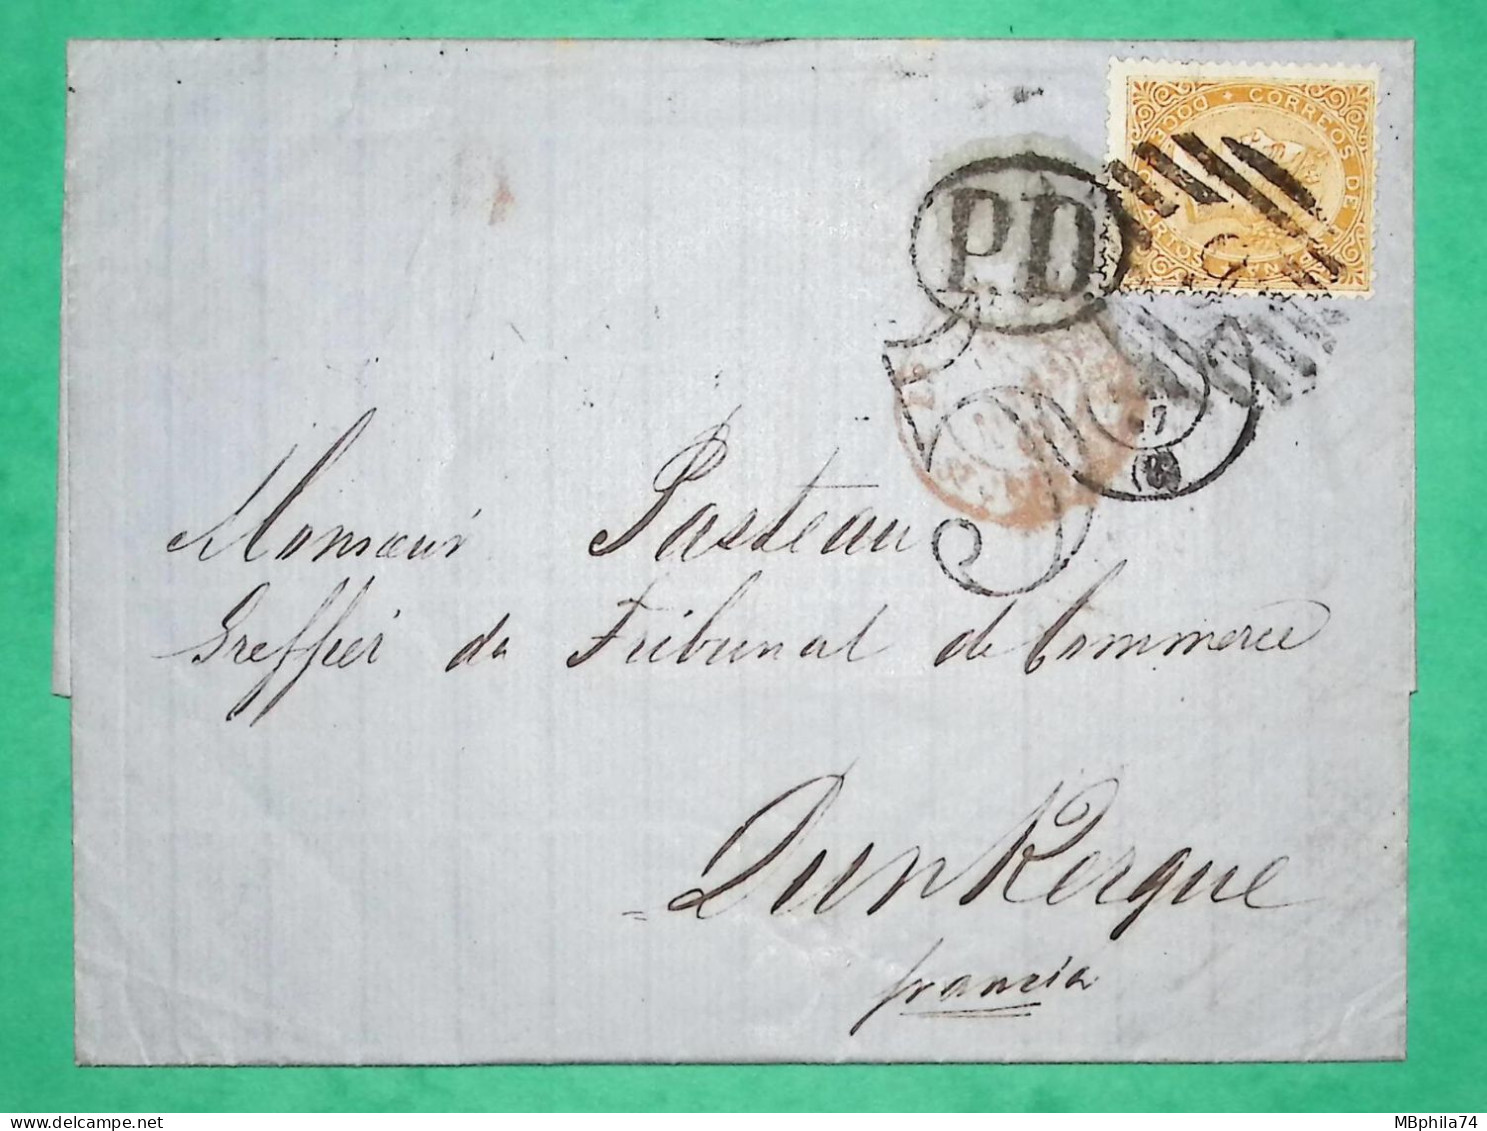 CORREOS DE
DOCE
P.D.
17
Monsieur Pasteau
Greffier du Tribunal de Commerce
Dunkerque
francia
MBphila74